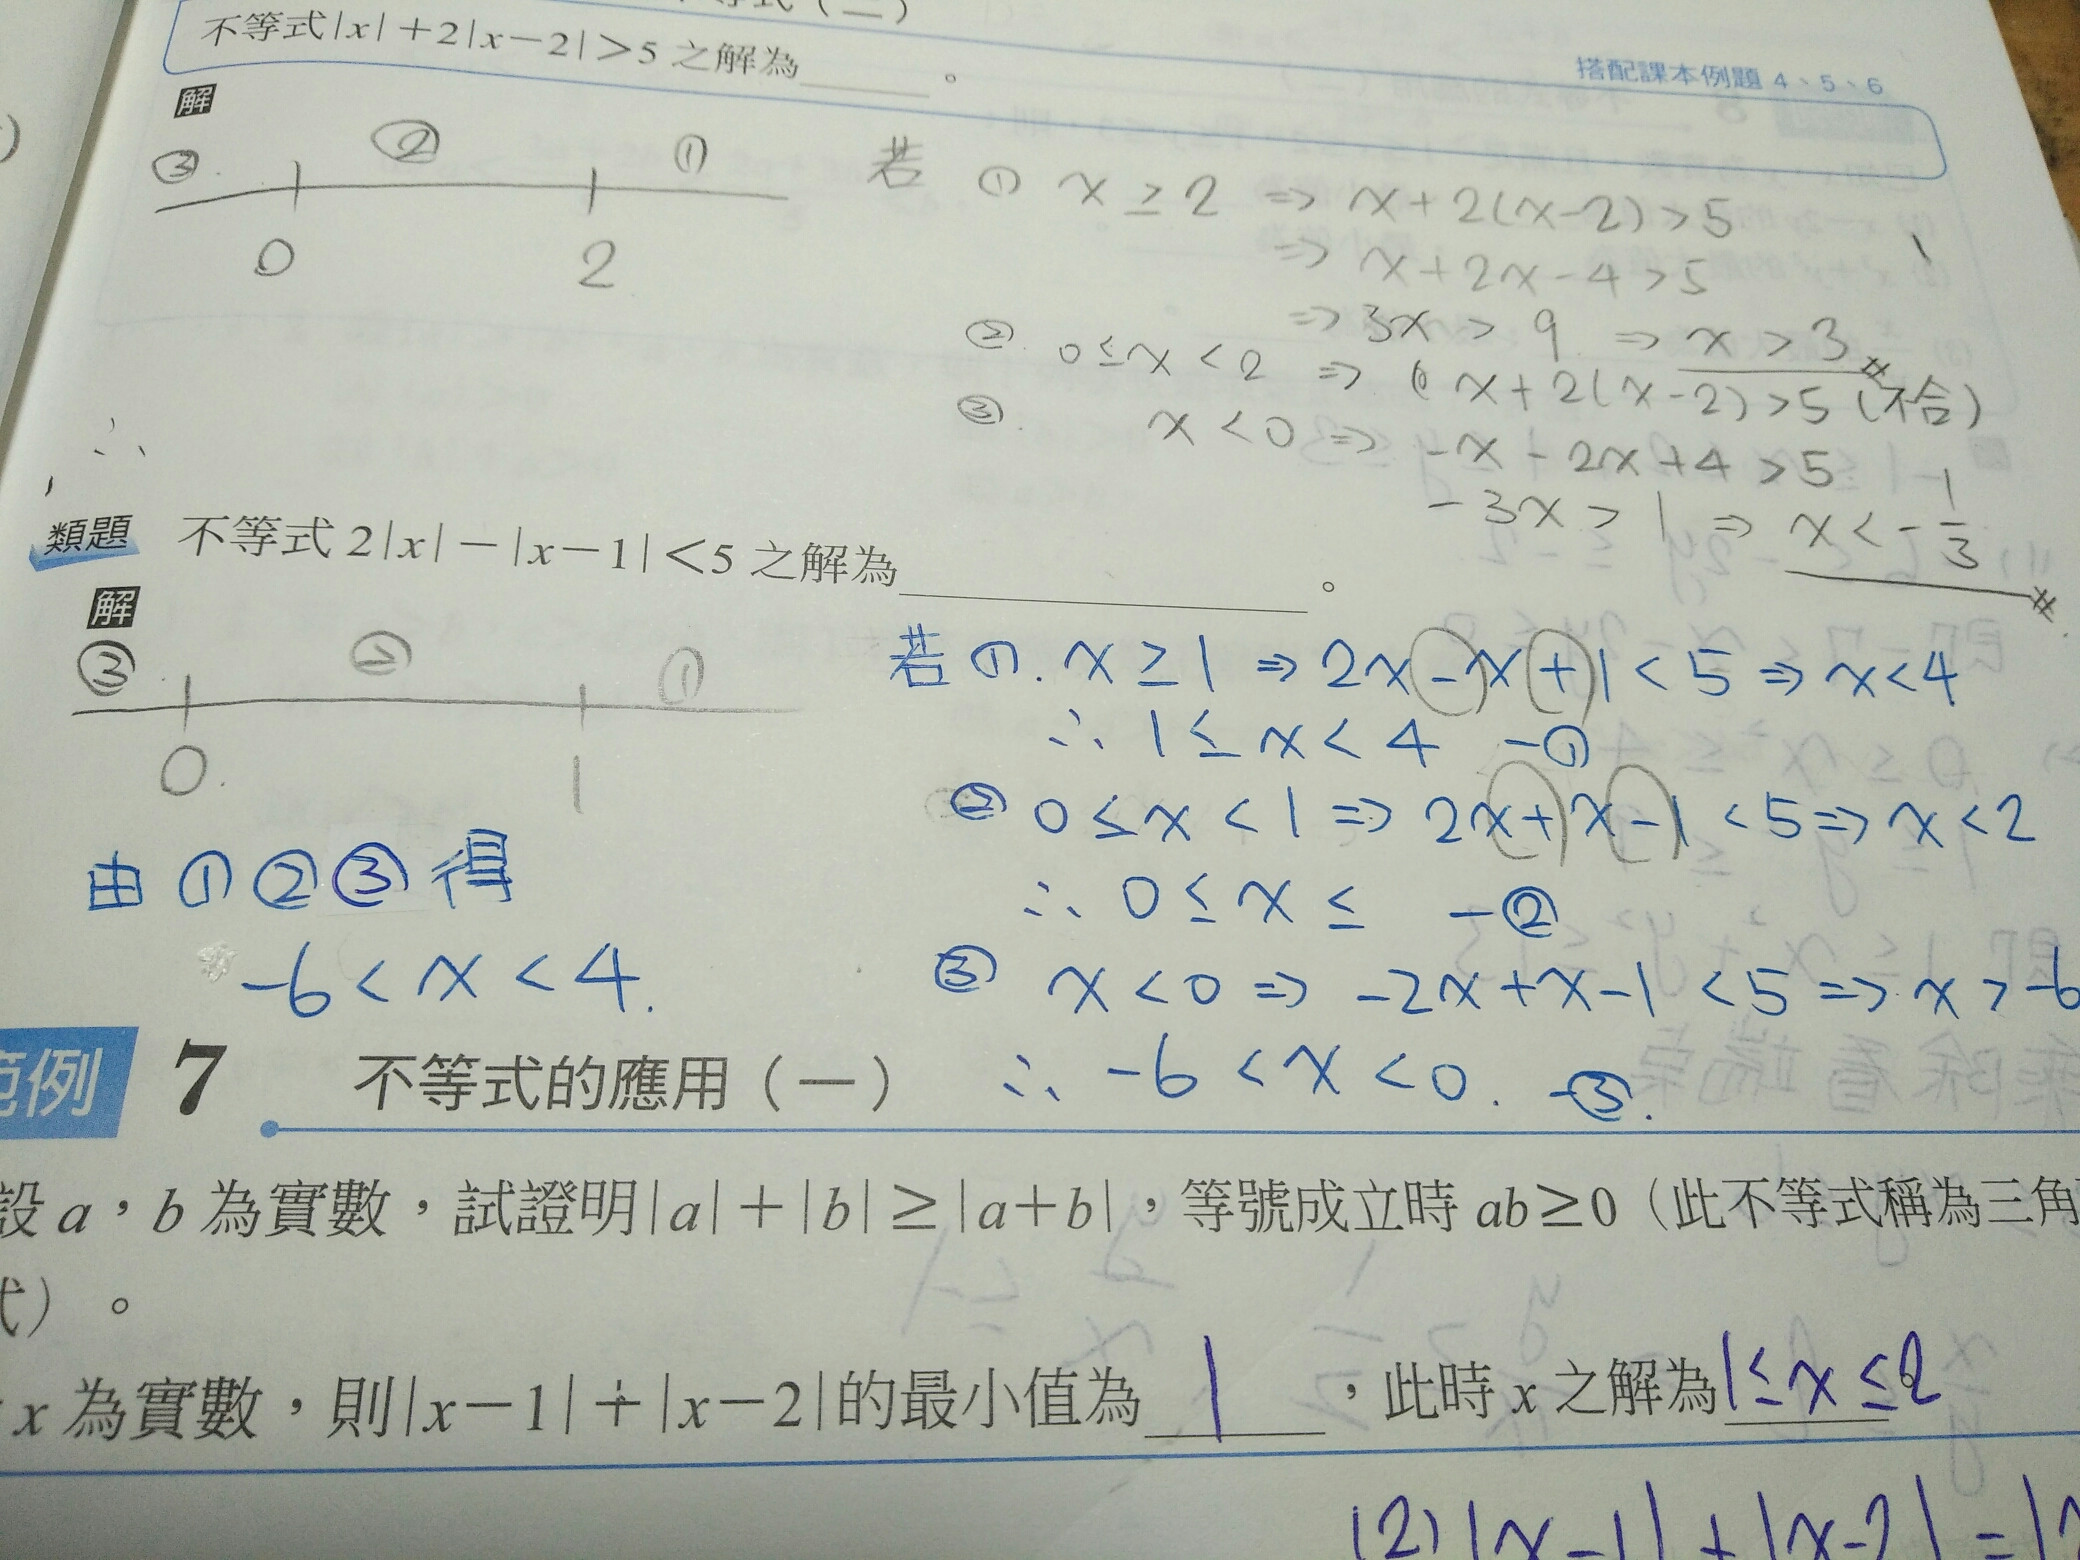 不等式(二)
不等式|x|+2|x-2|>5 之解為______。
搭配課本例題 4、5、6
解
③ ② ①
0 2
若 ① x ≥ 2 ⇒ x+2(x-2)>5
⇒ x+2x-4>5
⇒ 3x > 9 ⇒ x > 3
② 0≤x<2 ⇒ x+2(x-2)>5 (不合)
③ x<0 ⇒ -x-2x+4>5
-3x>1 ⇒ x<-1/3
∴
類題 不等式 2|x|-|x-1|<5 之解為______。
解
③ ② ①
0 1
若 ①. x≥1 ⇒ 2x-x+1<5 ⇒ x<4
∴ 1≤x<4 -①
② 0≤x<1 ⇒ 2x+x-1<5 ⇒ x<2
∴ 0≤x≤ -②
③ x<0 ⇒ -2x+x-1<5 ⇒ x>-6
∴ -6<x<0. -③.
由 ① ② ③ 得
-6<x<4.
範例 7 不等式的應用(一)
設 a,b 為實數,試證明|a|+|b|≥|a+b|,等號成立時 ab≥0(此不等式稱為三角
式)。
x 為實數,則|x-1|+|x-2|的最小值為 1 ,此時 x 之解為 1≤x≤2
(2) |x-1|+|x-2|=|